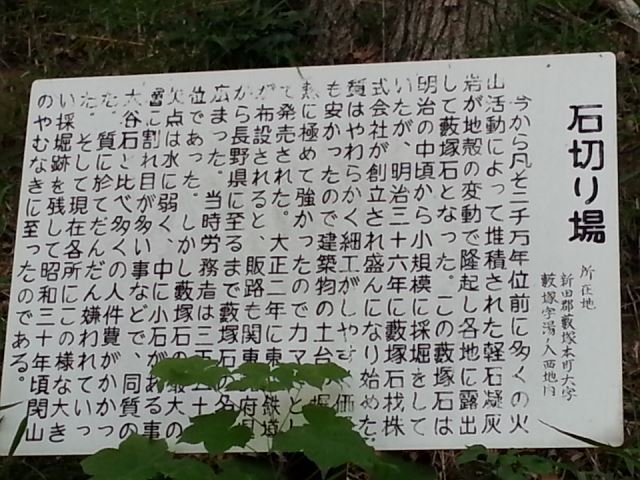 石切り場
所在地
新田郡藪塚本町大字
藪塚字湯ノ入西地内
今から凡そ二千万年位前に多くの火
山活動によって堆積された軽石凝灰
岩が地殻の変動で隆起し各地に露出
して藪塚石となった。この藪塚石は
明治の中頃から小規模に採堀をして
いたが、明治三十六年に藪塚石材株
式会社が創立され盛んになり始めた。
質はやわらかく細工がしやすく価
も安かったので建築物の土台
熱に極めて強かったのでカマドとし
て発売された。大正二年に東武鉄道
が布設されると、販路も関東 府県
から長野県に至るまで藪塚石の名
広まった。当時労務者は三百五十
位であった。しかし藪塚石の最大の
欠点は水に弱く、中に小石がある事
層に割れ目が多い事などで、同質の
大谷石と比べ多くの人件費がかかっ
た。質に於てだんだん嫌われていっ
た。そして現在各所にこの様な大き
い採堀跡を残して昭和三十年頃閉山
のやむなきに至ったのである。